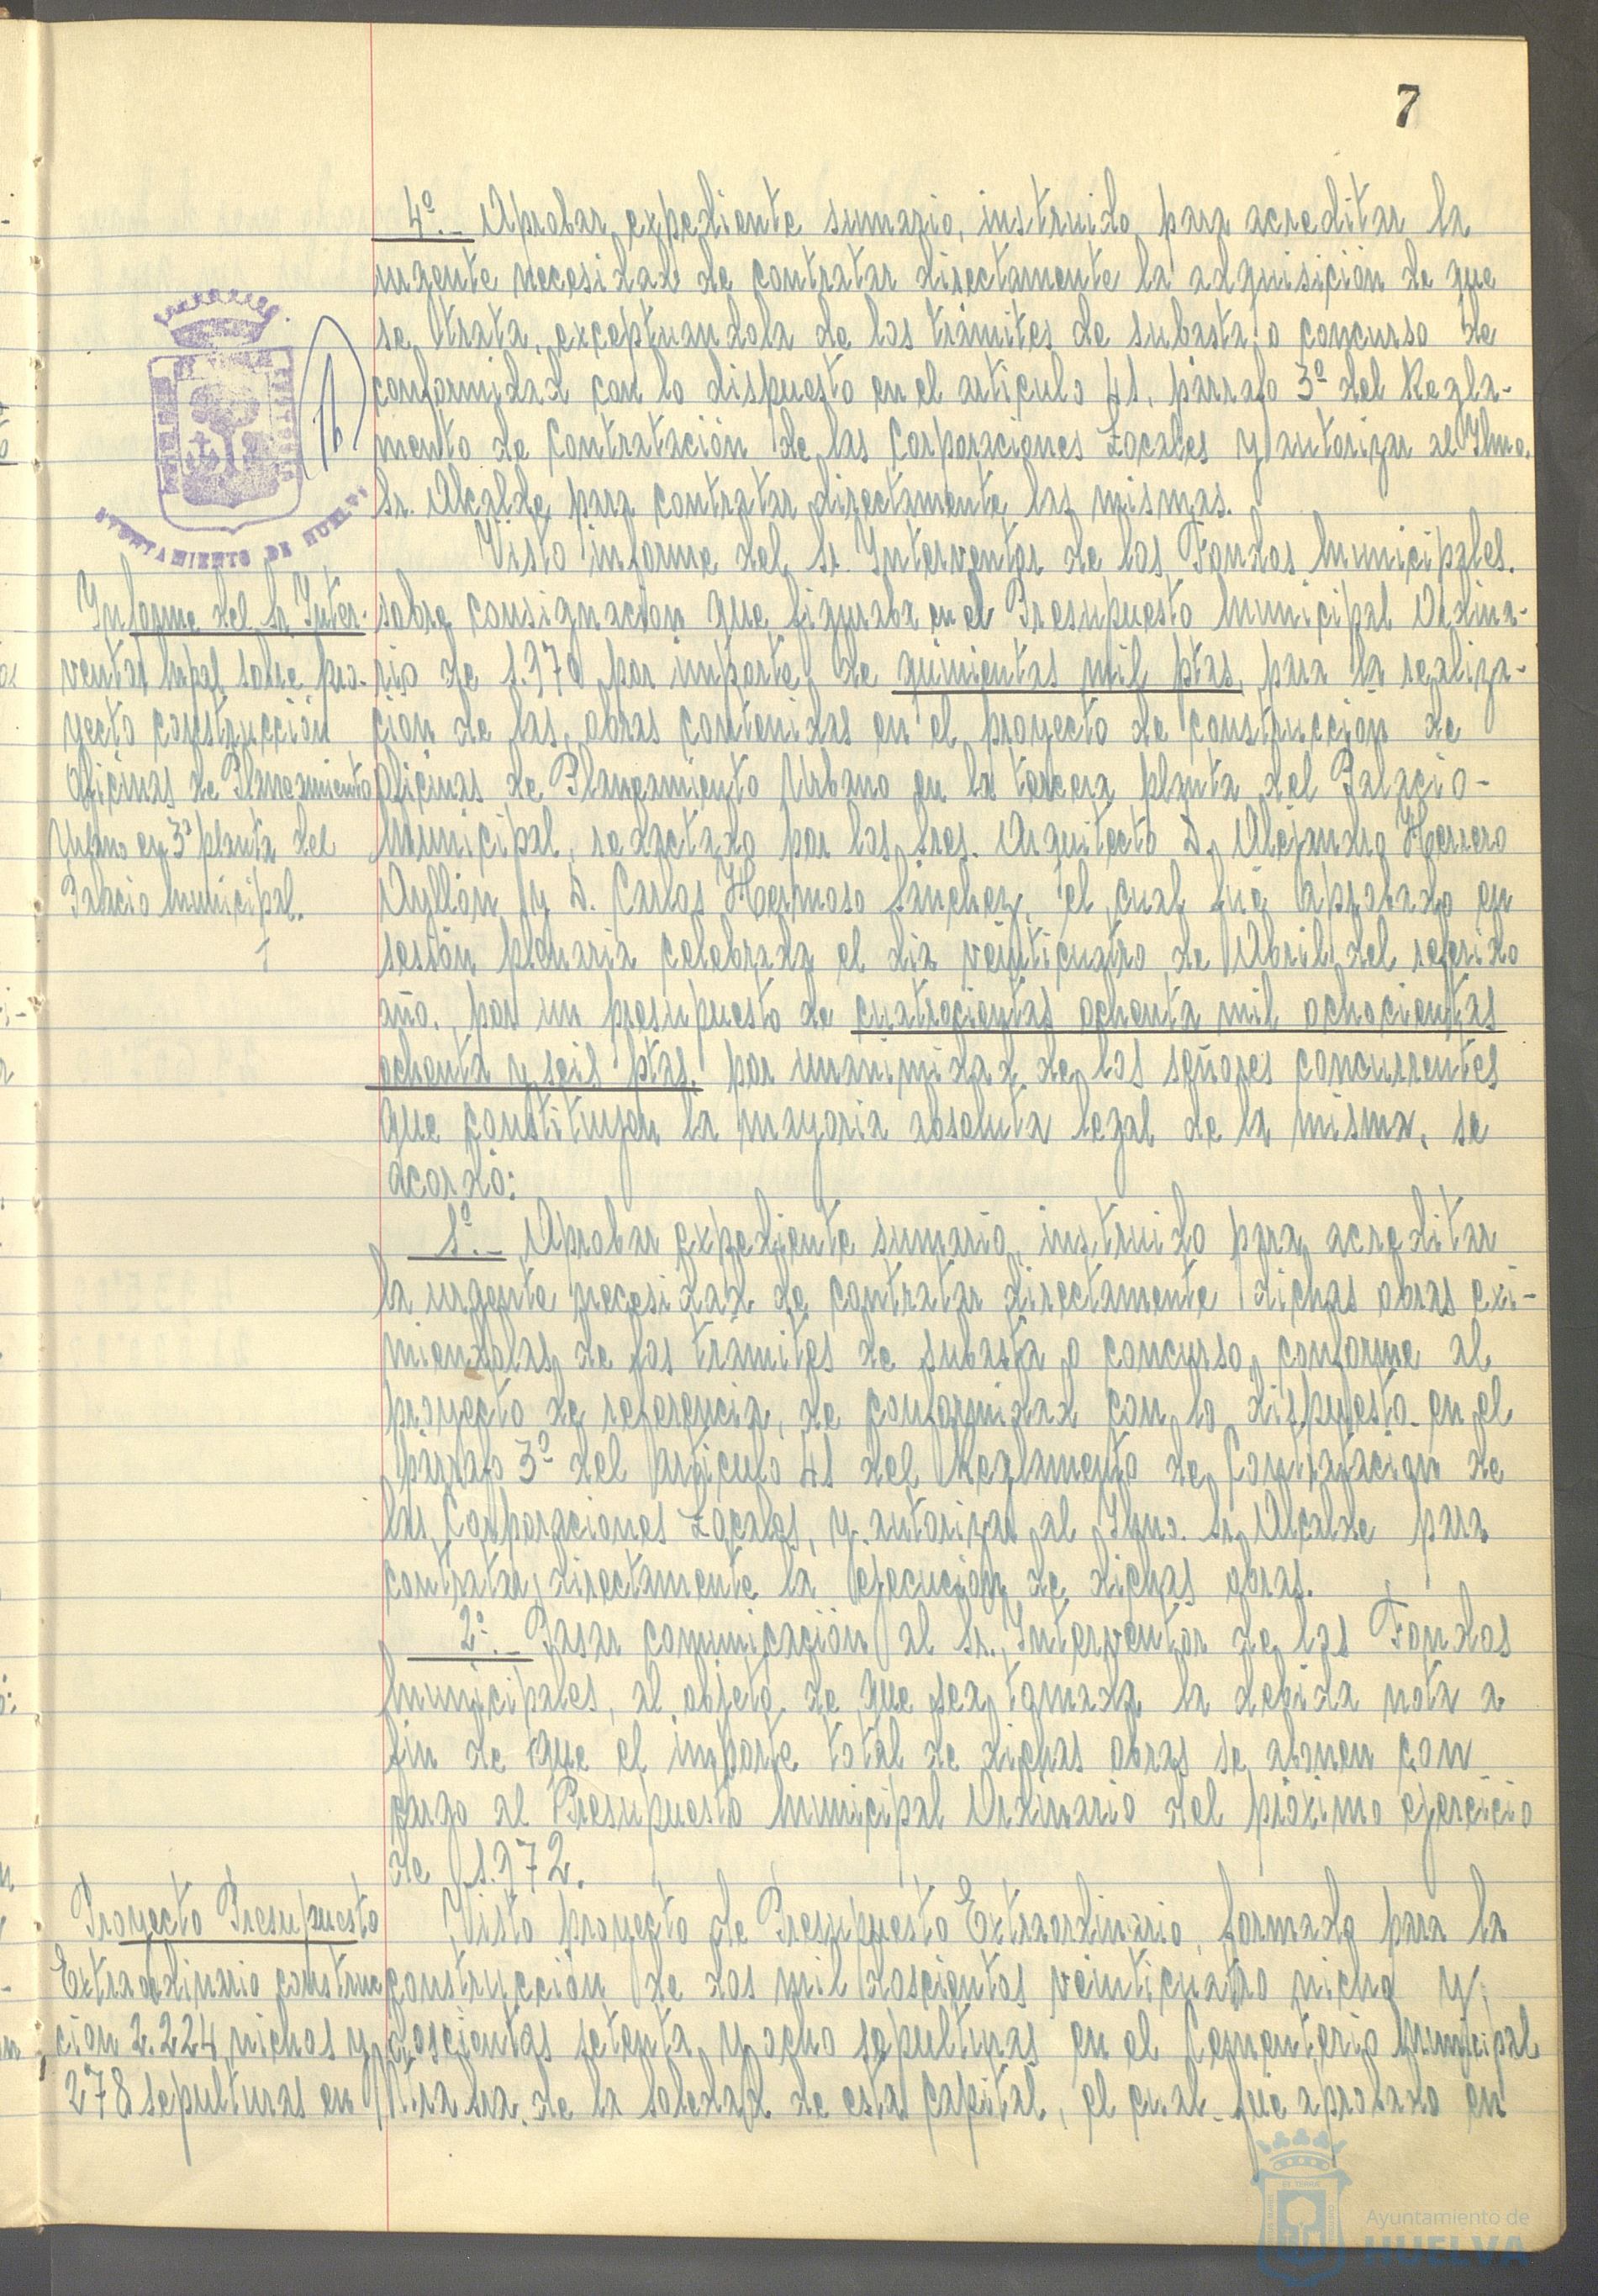 7
4º.- Aprobar expediente sumario, instruido para acreditar la
urgente necesidad de contratar directamente la adquisición de que
se trata, exceptuandola de los trámites de subasta o concurso de
conformidad con lo dispuesto en el articulo 41, párrafo 3º del Regla-
mento de Contratación de las Corporaciones Locales y autorizar al Ilmo.
Sr. Alcalde para contratar directamente las mismas.
AYUNTAMIENTO DE HUELVA
Visto informe del Sr. Interventor de los Fondos Municipales.
sobre consignación que figuraba en el Presupuesto Municipal Ordina-
rio de 1.970 por importe de quinientas mil ptas, para la realiza-
ción de las obras contenidas en el proyecto de construcción de
Oficinas de Planeamiento Urbano en la tercera planta del Palacio-
Municipal, redactado por los Sres. Arquitecto D. Alejandro Herrero
Ayllón y D. Carlos Hermoso Sánchez, el cual fué aprobado en
sesión plenaria celebrada el dia veinticuatro de Abril del referido
año, por un presupuesto de cuatrocientas ochenta mil ochocientas
ochenta y seis ptas. por unanimidad de los señores concurrentes
que constituyen la mayoria absoluta legal de la misma, se
acordó:
Informe del Sr Inter-
ventor Mpal sobre pro-
yecto construcción
Oficinas de Planeamiento
Urbano en 3ª planta del
Palacio Municipal.
1º.- Aprobar expediente sumario, instruido para acreditar
la urgente necesidad de contratar directamente dichas obras exi-
miendolas de los trámites de subasta o concurso, conforme al
proyecto de referencia, de conformidad con lo dispuesto en el
párrafo 3º del artículo 41 del Reglamento de Contratación de
las Corporaciones Locales, y autorizar al Ilmo. Sr. Alcalde para
contratar directamente la ejecución de dichas obras.
2º.- Pasar comunicación al Sr. Interventor de los Fondos
Municipales, al objeto de que sea tomada la debida nota a
fin de que el importe total de dichas obras se abonen con
cargo al Presupuesto Municipal Ordinario del próximo ejercicio
de 1.972.
Proyecto Presupuesto
Extraordinario construc
cion 2.224 nichos y
278 sepulturas en
Visto proyecto de Presupuesto Extraordinario, formado para la
construcción de dos mil doscientos veinticuatro nicho y
doscientas setenta y ocho sepulturas en el Cementerio Municipal
Ntra Sra. de la Soledad de esta capital, el cual fué aprobado en
Ayuntamiento de
HUELVA